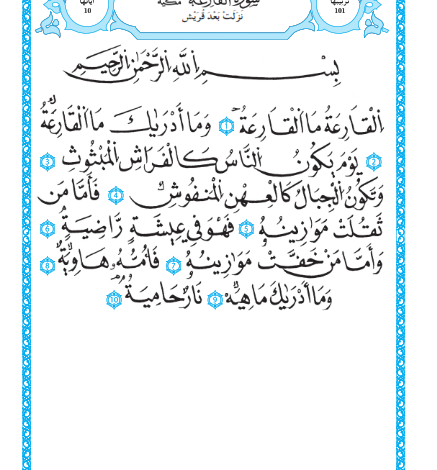 ترتيبها سورة القارعة مكية آياتها
101 نزلت بعد قريش 10
بِسْمِ اِ۬للَّهِ اِ۬لرَّحْمَٰنِ اِ۬لرَّحِيمِ
اِ۬لْقَارِعَةُ مَا اَ۬لْقَارِعَةُ 1 وَمَا أَدْرَيٰكَ مَا اَ۬لْقَارِعَةُ
2 يَوْمَ يَكُونُ اُ۬لنَّاسُ كَالْفَرَاشِ اِ۬لْمَبْثُوثِ 3
وَتَكُونُ اُ۬لْجِبَالُ كَالْعِهْنِ اِ۬لْمَنفُوشِ 4 فَأَمَّا مَن
ثَقُلَتْ مَوَٰزِينُهُۥ 5 فَهُوَ فِي عِيشَةٍ رَّاضِيَةٍ 6
وَأَمَّا مَنْ خَفَّتْ مَوَٰزِينُهُۥ 7 فَأُمُّهُۥ هَاوِيَةٌ 8
وَمَا أَدْرَيٰكَ مَا هِيَهْ 9 نَارٌ حَامِيَةٌ 10